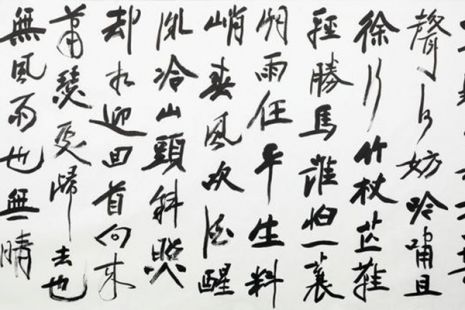 聲何妨吟嘯且
徐行竹杖芒鞋
輕勝馬誰怕一蓑
烟雨任平生料
峭春風吹酒醒
微冷山頭斜照
却相迎回首向来
蕭瑟處歸去也
無風雨也無晴